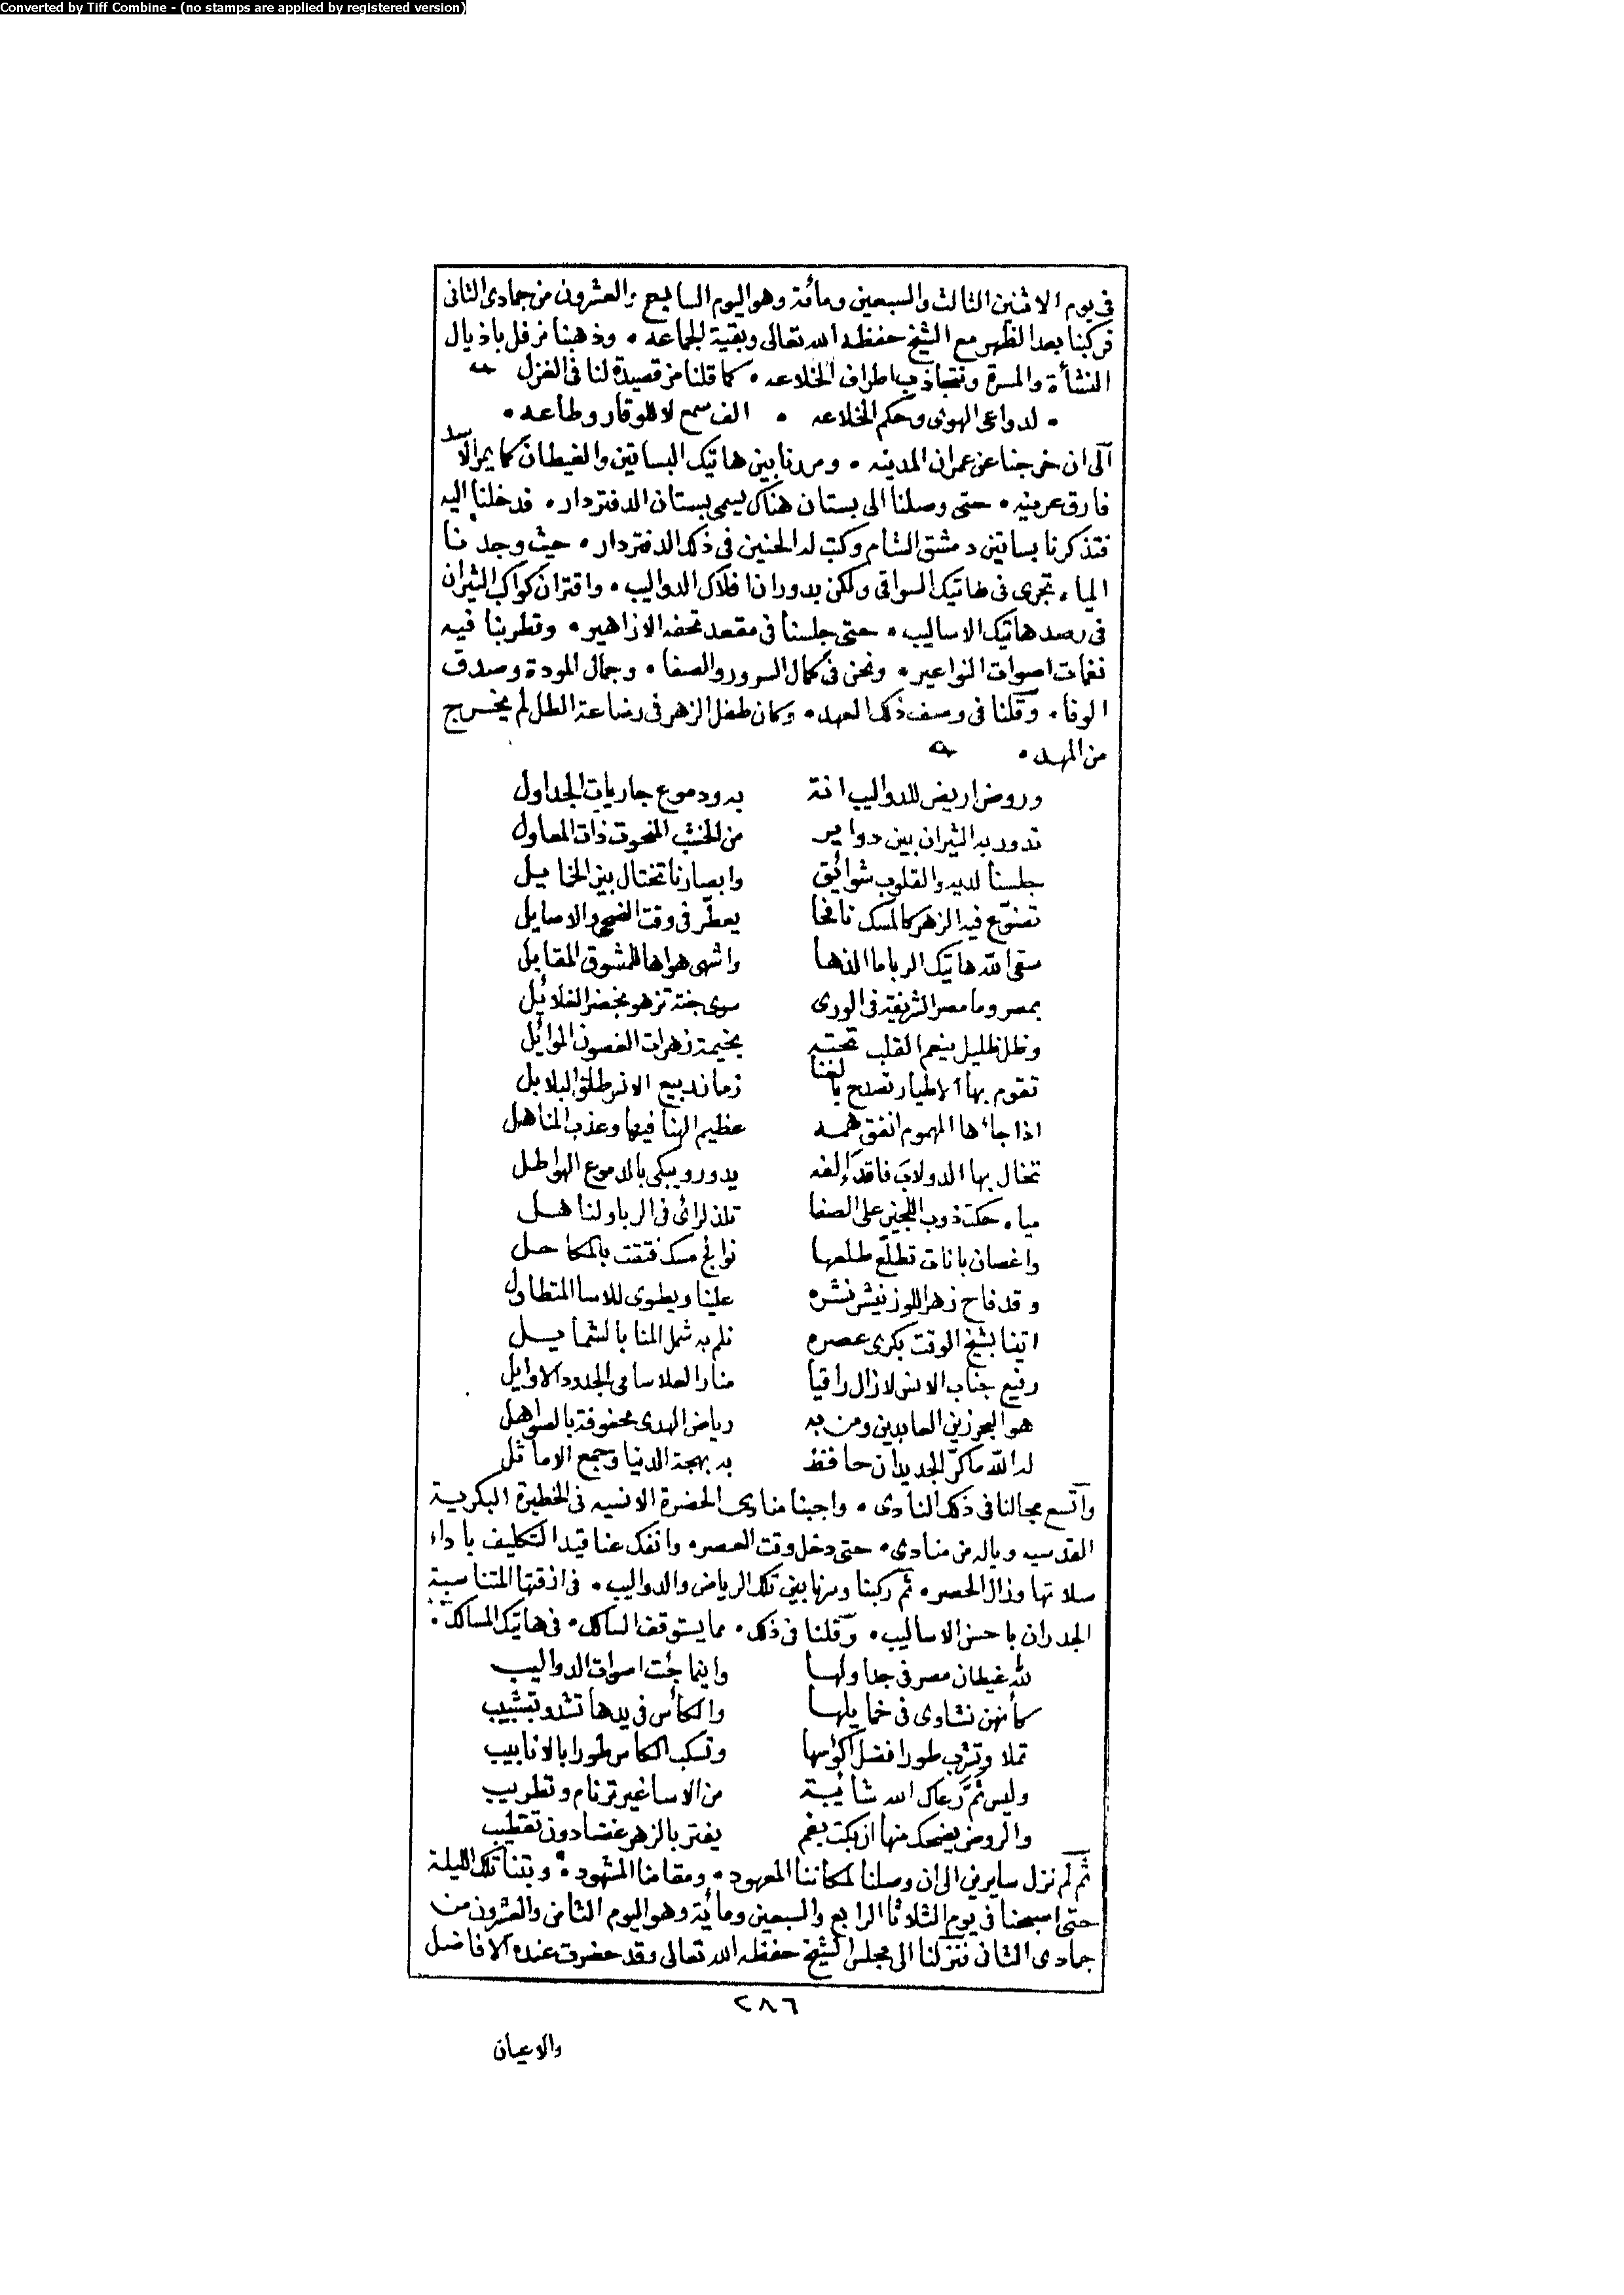 Converted by Tiff Combine - (no stamps are applied by registered version)
في يوم الاثنين الثالث والسبعين ومأئة وهو اليوم السابع والعشرون من جمادى الثانى
فركبنا بعد الظهر مع الشيخ حفظه الله تعالى وبقية الجماعه • وذهبنا نرفل باذيال
النشأة والمسرة ونتجاذب اطراف الخلاعه • كما قلنا من قصيدة لنا فى الغزل
• لدواعى الهوى وحكم الخلاعه • الف سمع لا للوقار وطاعه •
الى ان خرجنا عن عمران المدينه • ومررنا بين هاتيك البساتين والغيطان كما يمر الاسد
فارق عرينه • حتى وصلنا الى بستان هناك يسمى بستان الدفتردار • فدخلنا اليه
فتذكرنا بساتين دمشق الشام وكب له الحنين فى ذلك الدفتردار • حيث وجدنا
المياه تجرى فى هاتيك السواقى ولكن بدوران افلاك الدواليب • واقتران كواكب الثيران
فى رصد هاتيك الاساليب • حتى جلسنا فى مقعد تحفه الازاهير • وتطربنا فيه
نغمات اصوات النواعير • ونحن فى كمال السرور والصفا • وجمال المودة وصدق
الوفا • وقلنا فى وصف ذلك العهد • وكان طفل الزهر فى رضاعة الطل لم يخرج
من المهد •
وروض اريض للدواليب انة به ودموع جاريات الجداول
تدور به الثيران بين دواير من الخشب المنحوت ذات المعاول
جلسنا لديه والقلوب شوائق وابصارنا تختال بين الخمايل
تضوّع فيه الزهر كالمسك نافحا يعطّر فى وقت الضحى والاصايل
سقى الله هاتيك الربا ما الذها واشهى هواها للمشوق المقابل
بمصر وما مصر الشريفة فى الورى سوى جنة تزهو بخضر الغلائل
وظل ظليل ينعم القلب تحته بخيمة زهرات الغصون الموائل
تقوم بها الاطيار تصدح بالغنا زمان ربيع الانس طلق البلابل
اذا جاءها المهموم انفق همه عظيم الهنا فيها وعذب المناهل
تخال بها الدولاب فاقد إلفه يدور ويبكى بالدموع الهواطل
مياه حكت ذوب اللجين على الصفا تلذ لرائى فى الربا ولناهل
واغصان بانات تطلّع طلعها نوافج مسك فتقت بالمكاحل
وقد فاح زهر اللوز ينشر نشره علينا ويطوى للاسا المتطاول
اتينا بشيخ الوقت بكرى عصره نلم به شمل المنا بالشمايل
رفيع جناب الانس لازال راقيا منار العلا سامى الجدود الاوايل
هو البحر زين العابدين ومن به رياض الهدى محفوفة بالصواهل
له الله ماكرّ الجديدان حافظ به بهجة الدنيا وجمع الاماثل
واتسع مجالنا فى ذلك النادى • واجبنا منادى الحضرة الانسيه فى الخطيرة البكرية
القدسيه وياله من منادى • حتى دخل وقت العصر • وانفك عنا قيد التكليف باداء
صلاتها وزال الحصر • ثم ركبنا وسرنا بين تلك الرياض والدواليب • فى ازقتها المتناسبة
الجدران باحسن الاساليب • وقلنا فى ذلك • مما يستوقف السالك • فى هاتيك المسالك •
لله غيطان مصر فى جداولها واينما جئت اصوات الدواليب
كأنهن نشاوى فى خمايلها والكأس فى يدها تشدو بتشبيب
تملا وتشرب طورا فضل اكؤسها وتسكب الكاس طورا بالانابيب
وليس ثَمَّ رعاك الله شائبة من الاسا غير ترنام وتطريب
والروض يضحك منها ان بكت بفم يفتر بالزهر غضا دون تقطيب
ثم لم نزل سايرين الى ان وصلنا لمكاننا المعهود • ومقامنا المشهود • وبتنا تلك الليلة
حتى اصبحنا فى يوم الثلاثا الرابع والسبعين ومأية وهو اليوم الثامن والعشرون من
جمادى الثانى فنزلنا الى مجلس الشيخ حفظه الله تعالى وقد حضرت عنده الافاضل
٢٨٦
والاعيان